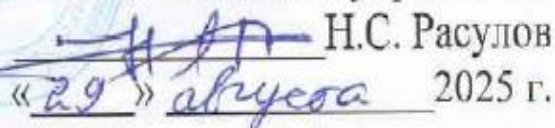 Н.С. Расулов
«29» августа 2025 г.